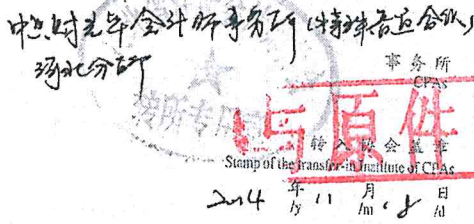 中兴财光华会计师事务所(特殊普通合伙)
河北分所
事务所
CPAs
转所专用章
与原件
转入协会盖章
Stamp of the transfer-in Institute of CPAs
2014 年 11 月 18 日
/y /m /d